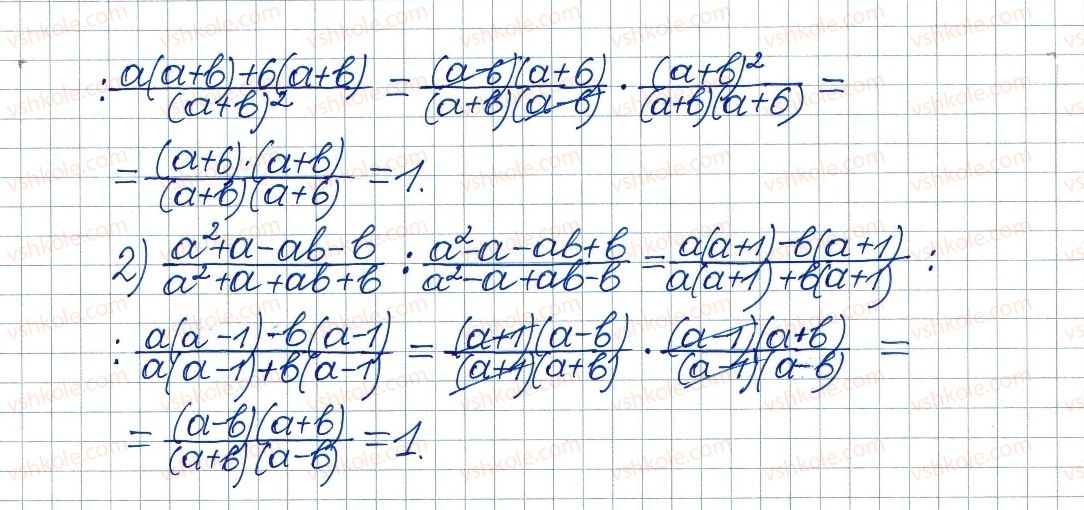 : a(a+b)+6(a+b) / (a+b)² = (a-6)(a+6) / (a+b)(a-6) · (a+b)² / (a+b)(a+6) =
= (a+6)·(a+b) / (a+b)(a+6) = 1.
2) a²+a-ab-b / a²+a+ab+b : a²-a-ab+b / a²-a+ab-b = a(a+1)-b(a+1) / a(a+1)+b(a+1) :
: a(a-1)-b(a-1) / a(a-1)+b(a-1) = (a+1)(a-b) / (a+1)(a+b) · (a-1)(a+b) / (a-1)(a-b) =
= (a-b)(a+b) / (a+b)(a-b) = 1.